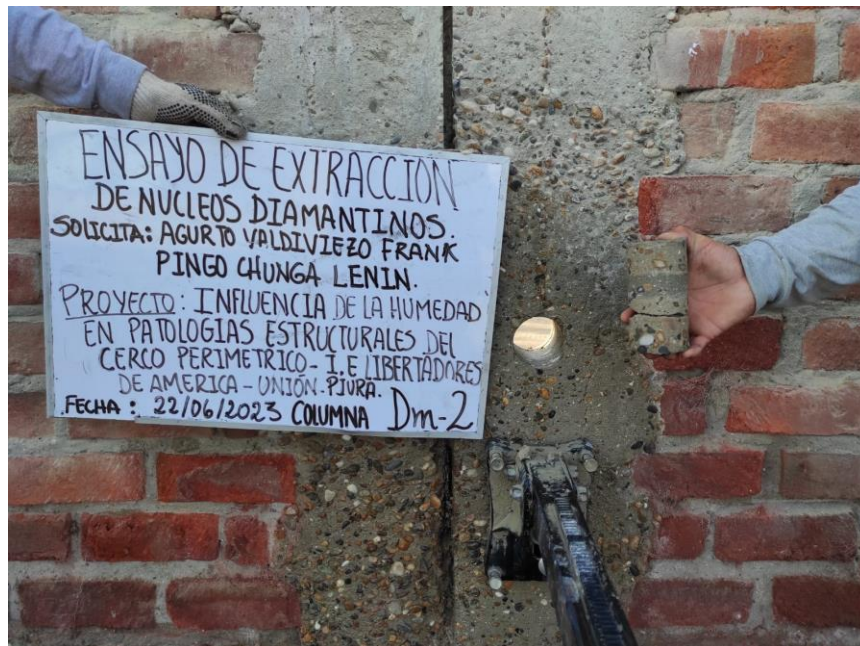 ENSAYO DE EXTRACCION
DE NUCLEOS DIAMANTINOS.
SOLICITA: AGURTO VALDIVIEZO FRANK
PINGO CHUNGA LENIN.
PROYECTO: INFLUENCIA DE LA HUMEDAD
EN PATOLOGIAS ESTRUCTURALES DEL
CERCO PERIMETRICO - I.E LIBERTADORES
DE AMERICA - UNIÓN. PIURA.
FECHA: 22/06/2023 COLUMNA Dm-2